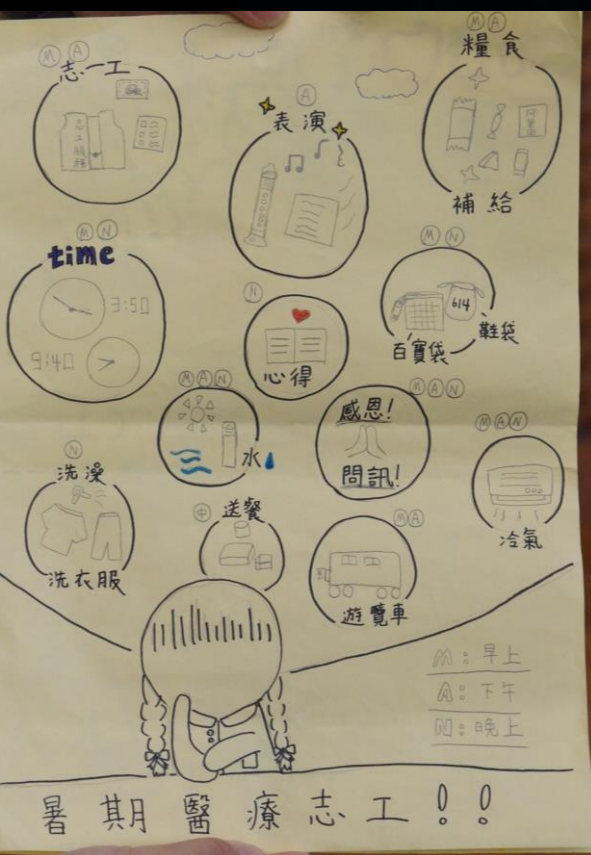 M A
志工
志工服務
A
表演
M A
糧食
補給
M N
time
3:50
9:40
N
心得
M N
614
百寶袋
鞋袋
M A N
水
M A N
感恩!
問訊!
M A N
冷氣
N
洗澡
洗衣服
中
送餐
M A
遊覽車
M:早上
A:下午
N:晚上
暑期醫療志工!!